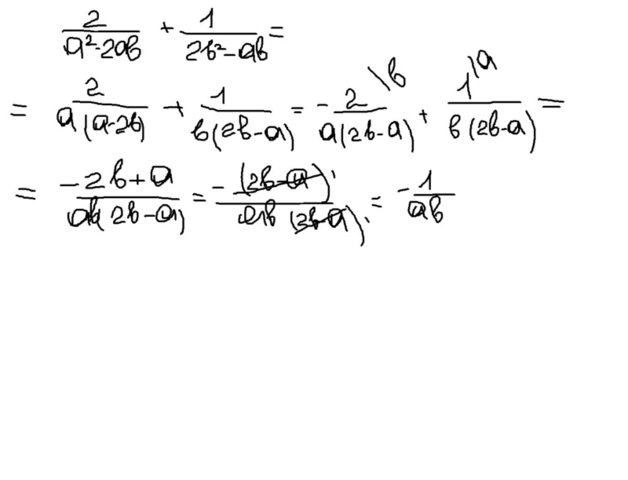 2/(a²-2ab) + 1/(2b²-ab) =
= 2/(a(a-2b)) + 1/(b(2b-a)) = -2\b/(a(2b-a)) + 1\a/(b(2b-a)) =
= (-2b+a)/(ab(2b-a)) = -(2b-a)/(ab(2b-a)) = -1/(ab)